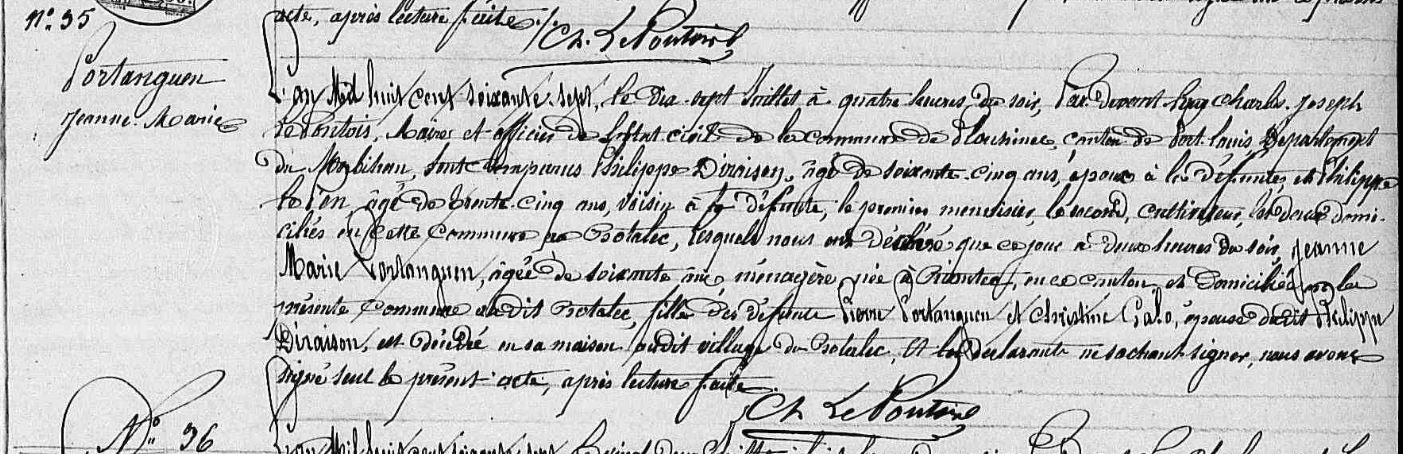 acte, après lecture faite ./.
Ch. Le Pontois
N°. 35
Portanguen
Jeanne-Marie
L'an Mil huit cent soixante-sept, le dix-sept Juillet à quatre heures du soir, Par devant Nous Charles-Joseph
Le Pontois, Maire et officier de l'état civil de la commune de Plouhinec, canton de Port-Louis, Département
du Morbihan, sont comparus Philippe Diraison, âgé de soixante-cinq ans, époux à la défunte, et Philippe
âgé de trente-cinq ans, voisin à la défunte, le premier menuisier, le second, cultivateur, les deux domi-
ciliés en cette commune au Rotalec, lesquels nous ont déclaré que ce jour à deux heures du soir, Jeanne
Marie Portanguen, âgée de soixante ans, ménagère née à Riantec, en ce canton, et domiciliée en la
présente commune au dit Rotalec, fille des défunts Pierre Portanguen et Christine Calo, épouse dudit Philippe
Diraison, est décédée en sa maison audit village du Rotalec, Et les déclarants ne sachant signer, nous avons
signé seul le présent acte, après lecture faite.
Ch. Le Pontois
N°. 36
L'an Mil huit cent soixante-sept